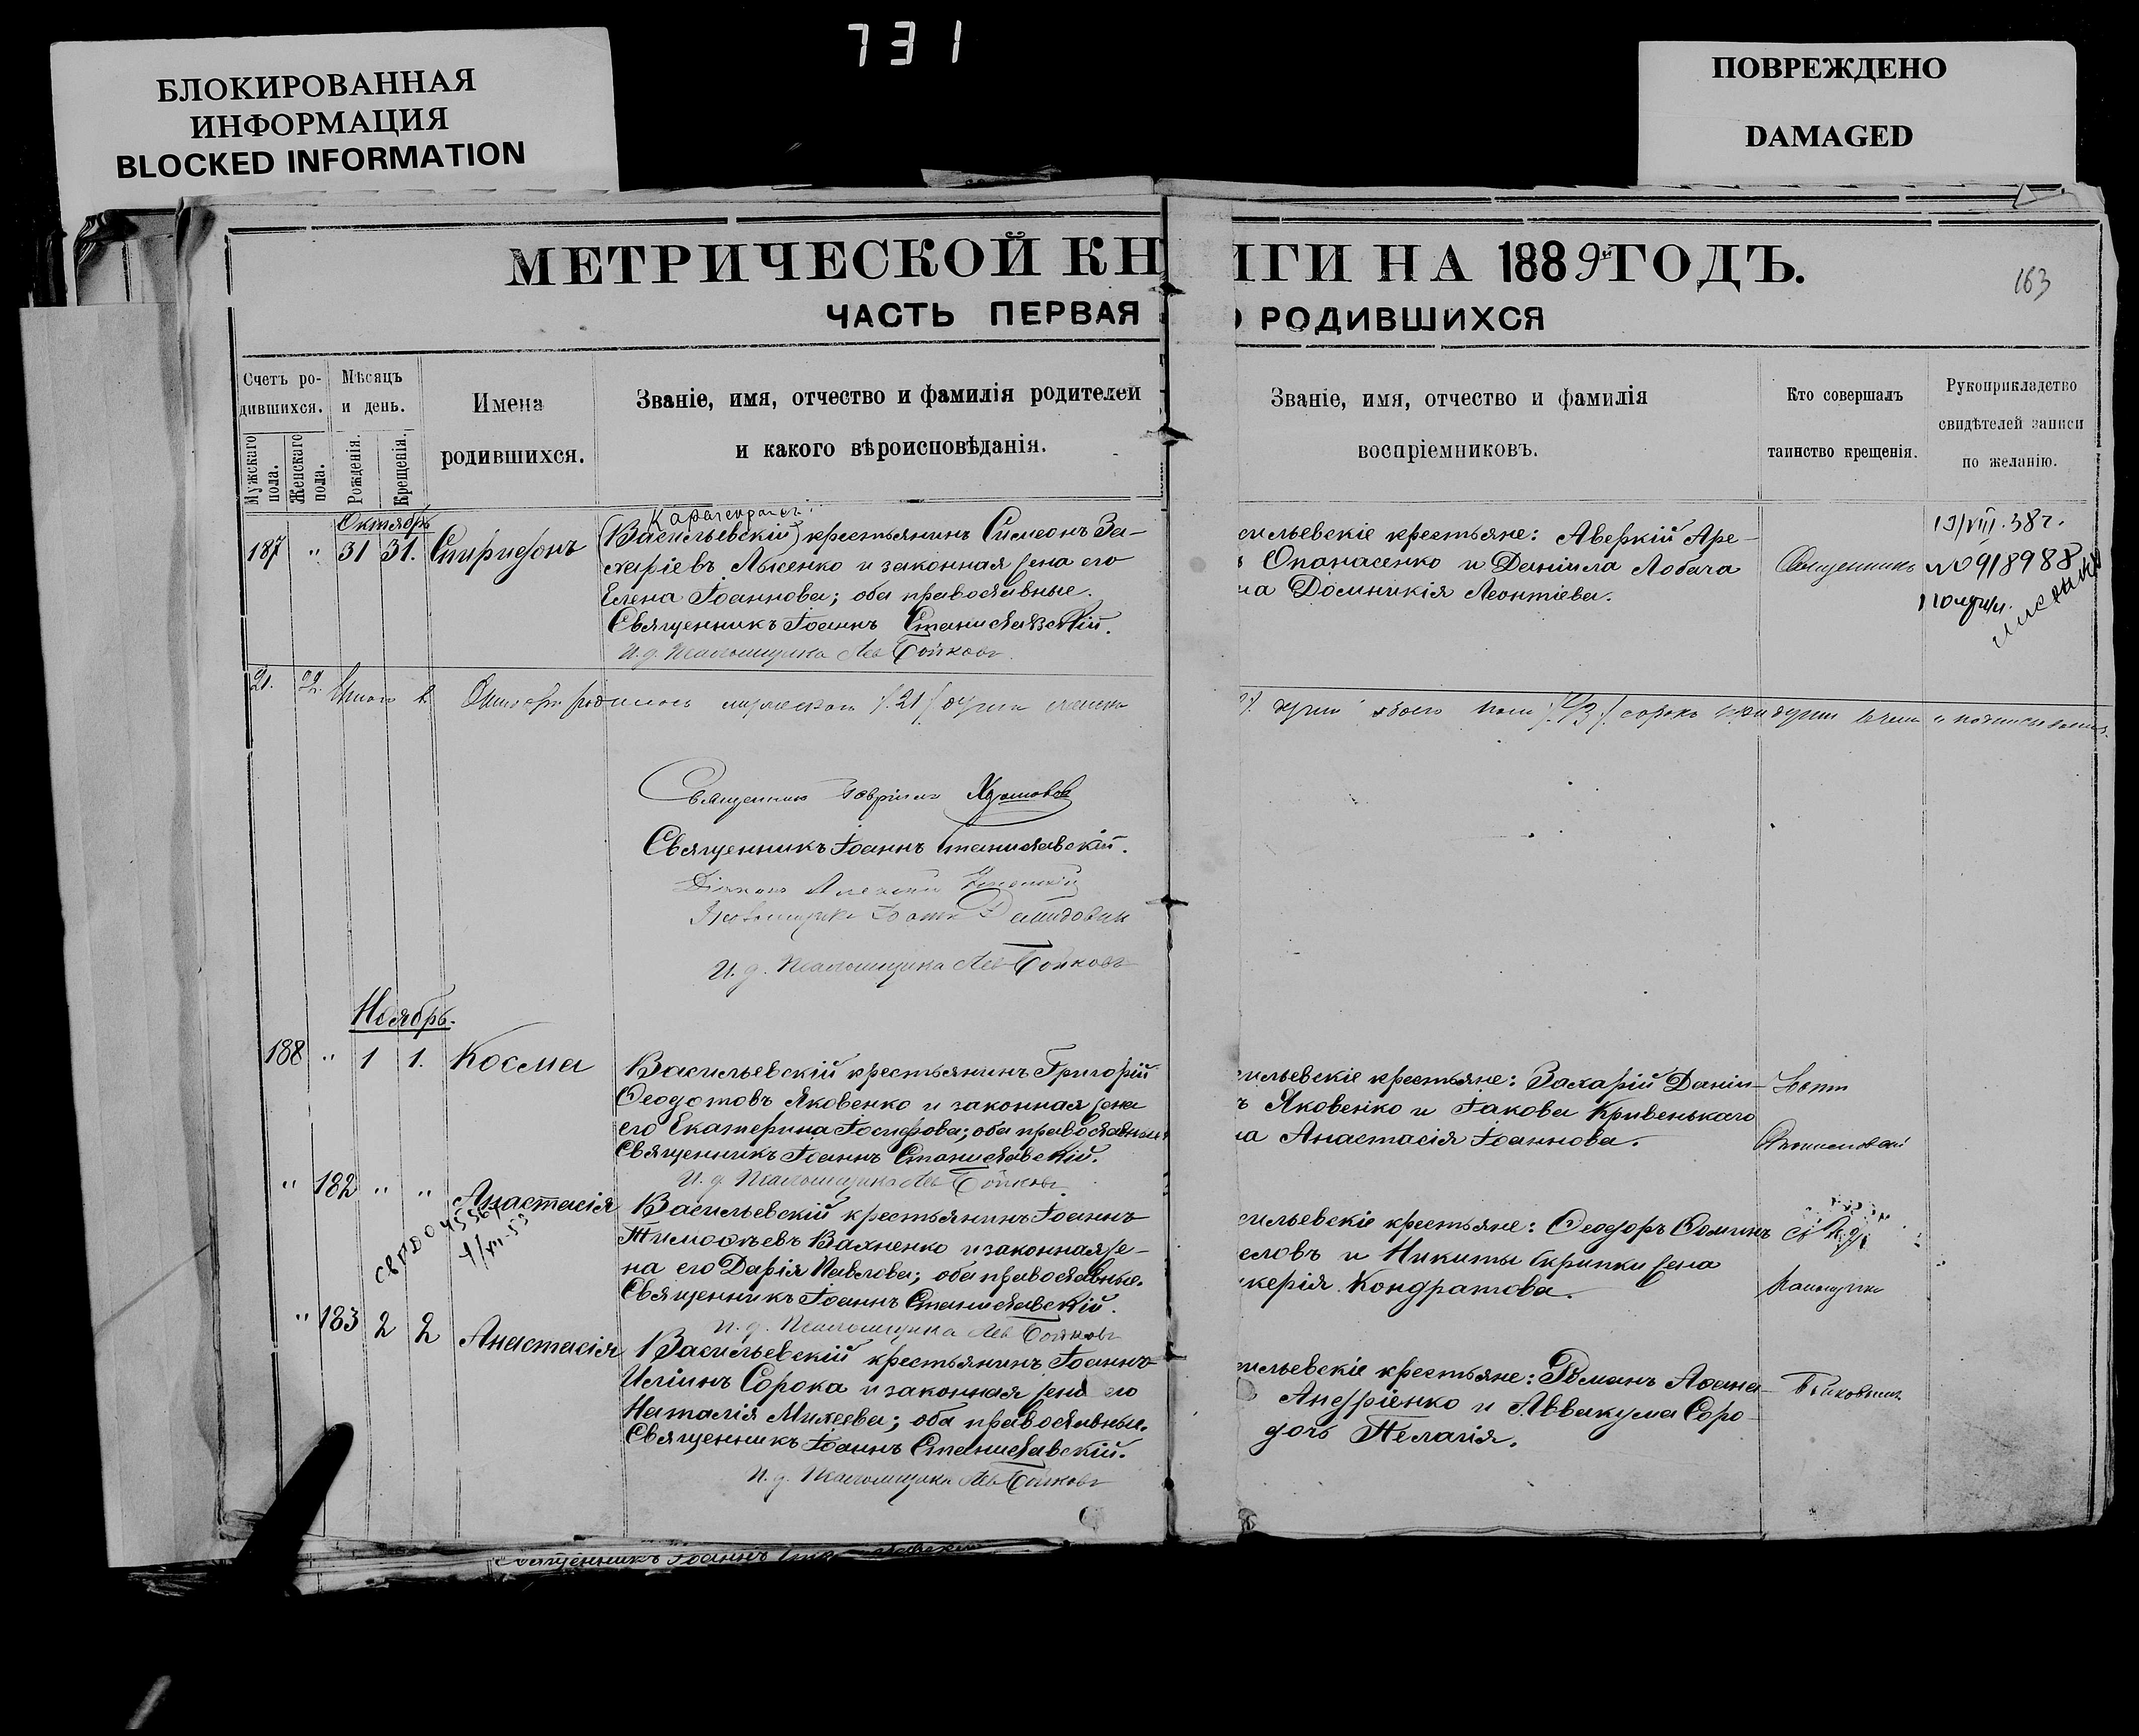 731
БЛОКИРОВАННАЯ
ИНФОРМАЦИЯ
BLOCKED INFORMATION
ПОВРЕЖДЕНО
DAMAGED
МЕТРИЧЕСКОЙ КН
ИГИ НА 1889 ГОДЪ.
163
ЧАСТЬ ПЕРВАЯ
О РОДИВШИХСЯ
Счетъ ро-
дившихся.
Мужскаго пола.
Женскаго пола.
Мѣсяцъ
и день.
Рожденія.
Крещенія.
Имена
родившихся.
Званіе, имя, отчество и фамилія родителей
и какого вѣроисповѣданія.
Званіе, имя, отчество и фамилія
воспріемниковъ.
Кто совершалъ
таинство крещенія.
Рукоприкладство
свидѣтелей записи
по желанію.
Октябрь
187 " 31 31. Спиридонъ
(Васильевскій) крестьянинъ Симеонъ За-
харіевъ Лысенко и законная жена его
Елена Іоаннова; оба православные.
Священникъ Іоаннъ Станиславскій.
И. д. Псаломщика Левъ Бойковъ
сильевскіе крестьяне: Аверкій Аре-
Опанасенко и Даніила Лобача
на Домникія Леонтіева.
Священникъ
19/VIII.38г.
№ 0918988
21. 22. Итого въ Октябрѣ родилось мужескаго /21/
душъ обоего пола /43/ сорокъ три души
Священникъ Гавріилъ
Священникъ Іоаннъ Станиславскій.
Діаконъ Алексій
Псаломщикъ
И. д. Псаломщика Левъ Бойковъ
Ноябрь.
188 " 1 1. Косма
Васильевскій крестьянинъ Григорій
Ѳеодотовъ Яковенко и законная жена
его Екатерина Іосифова; оба православные
Священникъ Іоаннъ Станиславскій.
И. д. Псаломщика Левъ Бойковъ
сильевскіе крестьяне: Захарій Даніи-
ъ Яковенко и Іакова Кривенькаго
на Анастасія Іоаннова.
Іоаннъ
Станиславскій
" 182 " " Анастасія
Васильевскій крестьянинъ Іоаннъ
Тимоѳеевъ Вахненко и законная же-
на его Дарія Павлова; оба православные.
Священникъ Іоаннъ Станиславскій.
И. д. Псаломщика Левъ Бойковъ
сильевскіе крестьяне: Ѳеодоръ Ѳоминъ
еловъ и Никиты Скрипки жена
икерія Кондратова.
съ И. д.
Псаломщика
" 183 2 2 Анастасія
Васильевскій крестьянинъ Іоаннъ
Иліинъ Сорока и законная жена его
Наталія Михеева; оба православные.
Священникъ Іоаннъ Станиславскій.
И. д. Псаломщика Левъ Бойковъ
сильевскіе крестьяне: Романъ Аѳана-
Андріенко и Аввакума Соро-
дочь Пелагія.
Бойковымъ
Священникъ Іоаннъ